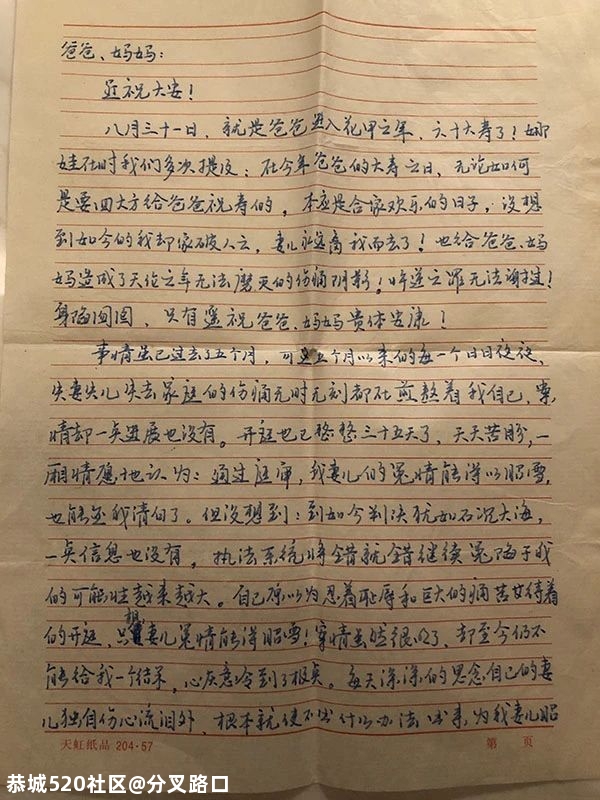 爸爸、妈妈：
近祝大安！
八月三十一日，就是爸爸进入花甲之年，六十大寿了！娜
娃在时我们多次提及：在今年爸爸的大寿之日，无论如何
是要回大方给爸爸祝寿的，本应是合家欢乐的日子，没想
到如今的我却家破人亡，妻儿永远离我而去了！也给爸爸、妈
妈造成了天伦之年无法磨灭的伤痛阴影！忤逆之罪无法谢过！
身陷囹圄，只有遥祝爸爸、妈妈贵体安康！
事情虽已过去了五个月，可这五个月以来的每一个日日夜夜、
失妻失儿失去家庭的伤痛无时无刻都在煎熬着我自己，案
情却一点进展也没有。开庭也已整整三十五天了，天天苦盼，一
厢情愿地认为：通过庭审，我妻儿的冤情能得以昭雪，
也能还我清白了。但没想到：到如今判决犹如石沉大海，
一点信息也没有，执法系统将错就错继续冤陷于我
的可能性越来越大。自己原以为忍着耻辱和巨大的痛苦等待着
的开庭，只想妻儿冤情能得昭雪！案情虽然很明了，却至今仍不
能给我一个结果，心灰意冷到了极点。每天深深的思念自己的妻
儿独自伤心流泪外，根本就使不出什么办法出来，为我妻儿昭
天虹纸品 204-57 第 页
恭城520社区@分叉路口